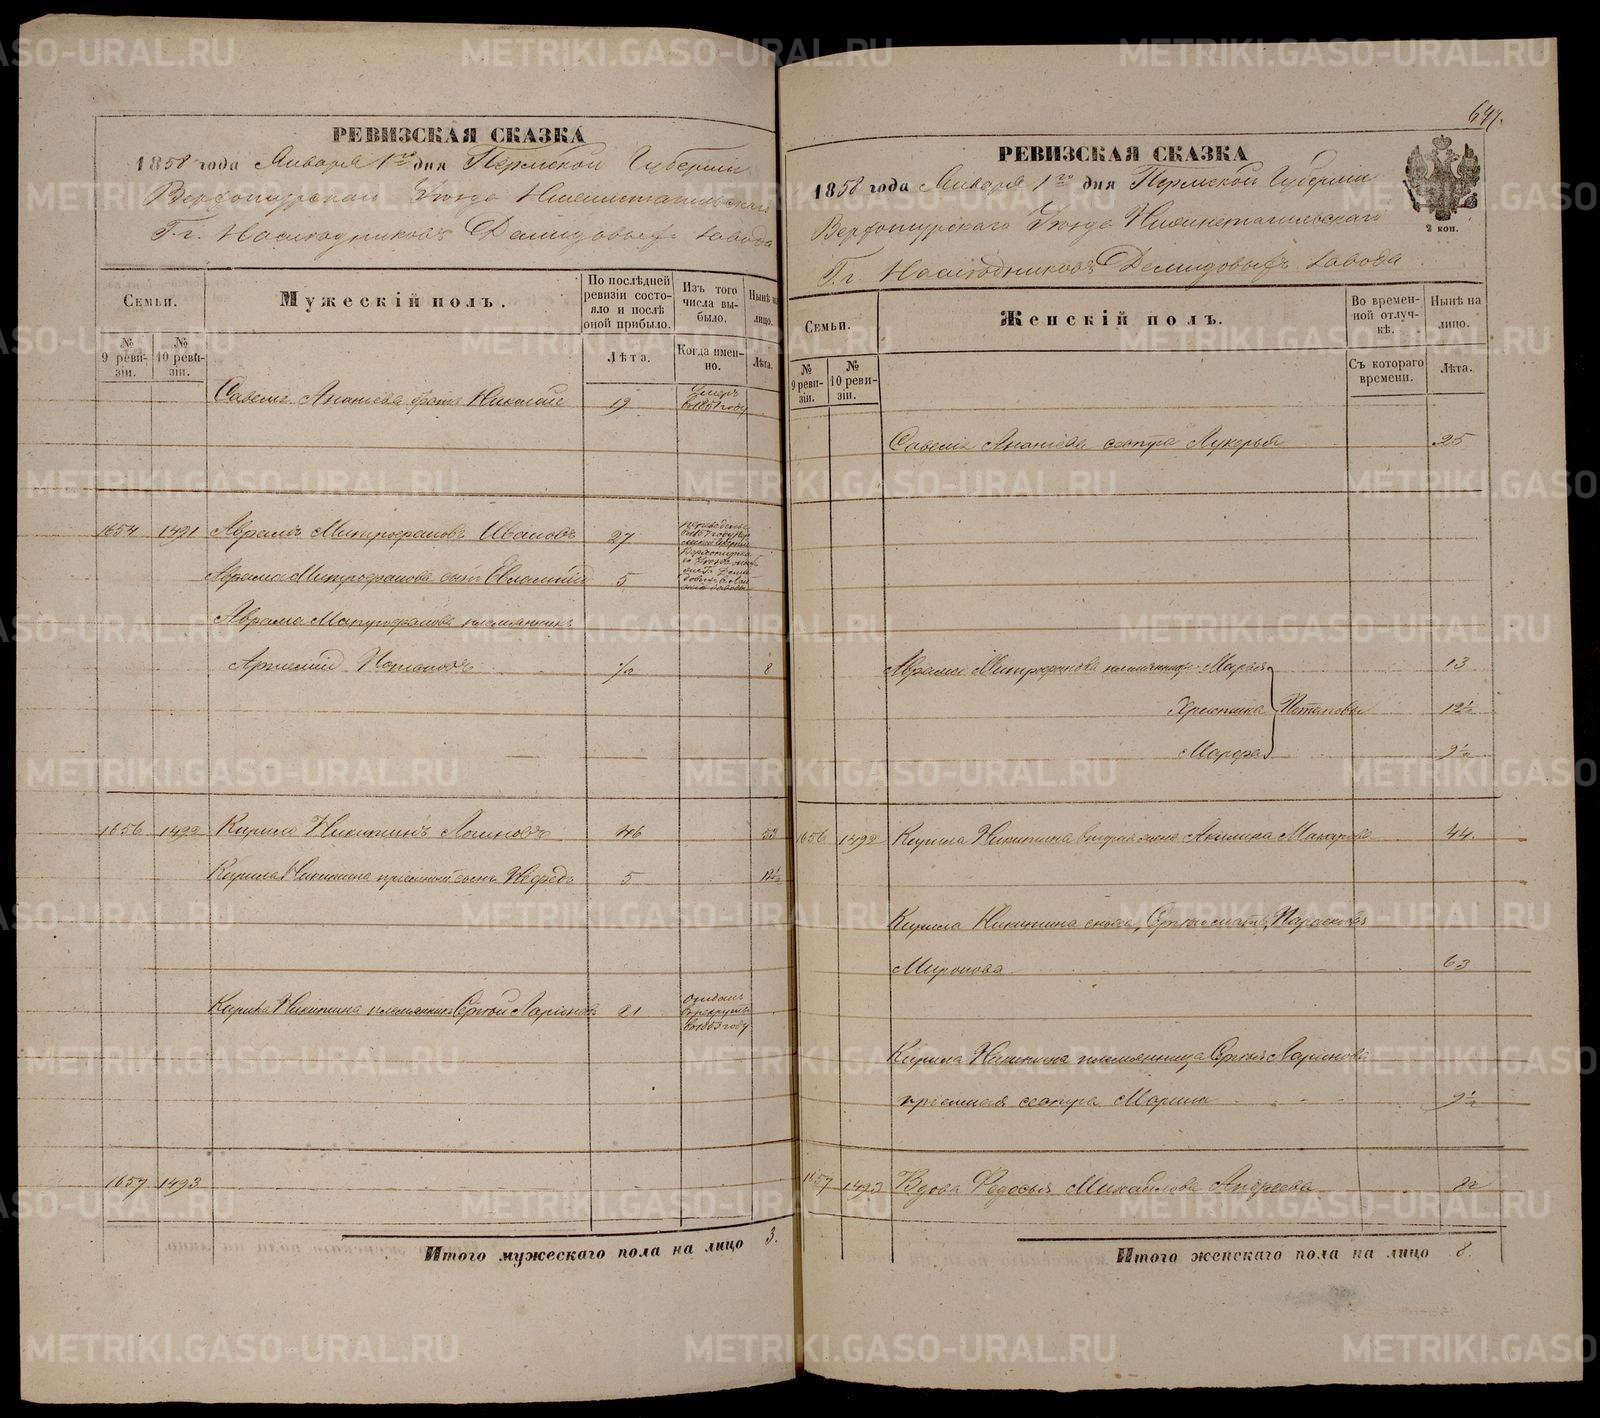 РЕВИЗСКАЯ СКАЗКА
1858 года Января 1го дня Пермской Губерніи
Верхотурскаго Уѣзда Нижнетагильскаго
Г.г. Наслѣдниковъ Демидовыхъ завода
Семьи.
Мужескій полъ.
По послѣдней ревизіи состояло и послѣ оной прибыло.
Изъ того числа выбыло.
Нынѣ на лицо.
№ 9 ревизіи.
№ 10 ревизіи.
Лѣта.
Когда именно.
Лѣта.
Савелія Ананіева братъ Николай 19 Умеръ въ 1851 году
1654 1491 Аврамъ Митрофановъ Ивановъ 27
Аврама Митрофанова сынъ 5
Аврама Митрофанова племянникъ
Артемій Потаповъ 1/2 8
1656 1492 Кирило Никитинъ Логиновъ 46 53
Кирила Никитина пріемный сынъ 5 12½
Кирила Никитина племянникъ Сергѣй Ларіоновъ 21 отданъ въ рекруты въ 1853 году
1657 1493
Итого мужескаго пола на лицо 3.
641.
РЕВИЗСКАЯ СКАЗКА
1858 года Января 1го дня Пермской Губерніи
Верхотурскаго Уѣзда Нижнетагильскаго
Г.г. Наслѣдниковъ Демидовыхъ завода
2 коп.
Семьи.
Женскій полъ.
Во временной отлучкѣ.
Нынѣ на лицо.
№ 9 ревизіи.
№ 10 ревизіи.
Съ котораго времени.
Лѣта.
Савелія Ананіева сестра Лукерья 25
Аврама Митрофанова племянницы Марья 13
Христина Потаповы 12½
Марфа 9½
1656 1492 Кирила Никитина вторая жена Акилина Макарова 44.
Кирила Никитина сноха, Сергѣя мать, Парасковья
Миронова 63
Кирила Никитина племянника Сергѣя Ларіонова
пріемная сестра Марина 9½
1657 1493 Вдова Федосья Михайлова Андреева 82
Итого женскаго пола на лицо 8.
METRIKI.GASO-URAL.RU